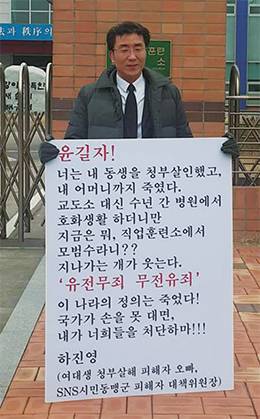 과 질서의
윤길자!
너는 내 동생을 청부살인했고,
내 어머니까지 죽였다.
교도소 대신 수년 간 병원에서
호화생활 하더니만
지금은 뭐, 직업훈련소에서
모범수라니??
지나가는 개가 웃는다.
‘유전무죄 무전유죄’
이 나라의 정의는 죽었다!
국가가 손을 못 대면,
내가 너희들을 처단하마!!!
하진영
(여대생 청부살해 피해자 오빠,
SNS시민동맹군 피해자 대책위원장)